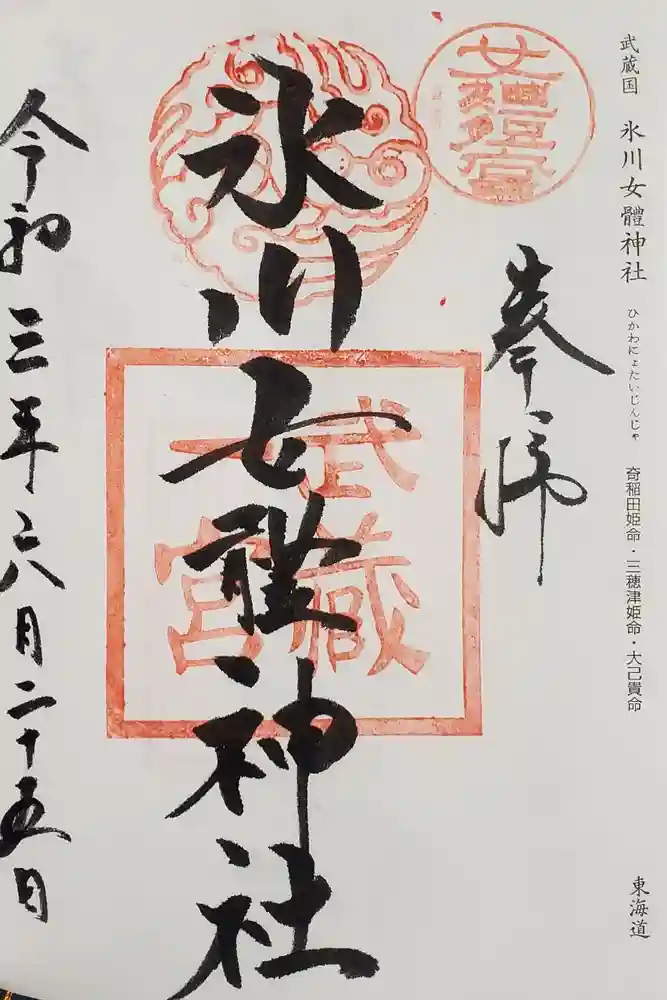 武蔵国 氷川女體神社 ひかわにょたいじんじゃ 奇稲田姫命・三穂津姫命・大己貴命
東海道
奉拝
女體宮
氷川女體神社
武蔵
一宮
令和三年六月二十五日